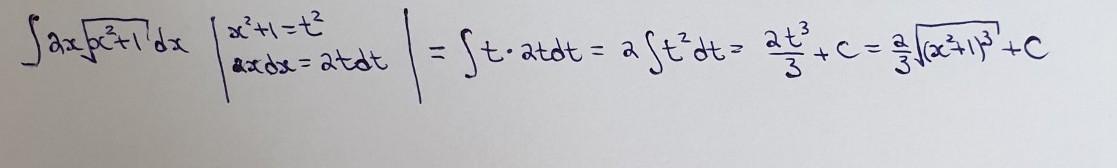 ∫2x√(x²+1) dx | x²+1=t² 2xdx=2tdt | = ∫t·2tdt = 2∫t²dt = 2t³/3 + C = 2/3 √((x²+1)³) + C